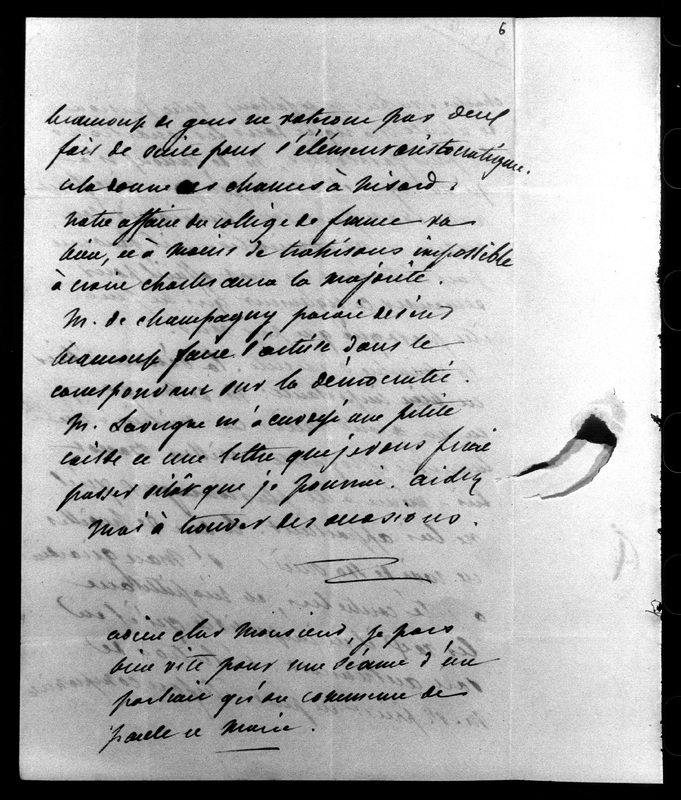 6
beaucoup de gens ne voteront pas deux
fois de suite pour l'élément aristocratique.
cela donne des chances à Nisard.
Notre affaire du collège de france va
bien, et à moins de trahisons impossible
à croire charles aura la majorité.
M. de champagny parait désirer
beaucoup faire l'article dans le
correspondant sur la démocratie.
M. Lavergne m'a envoyé une petite
caisse et une lettre que je vous ferai
passer sitôt que je pourrai. aidez
moi à trouver des occasions.
adieu cher Monsieur, je pars
bien vite pour une séance d'un
portrait qu'on commence de
paule et Marie.